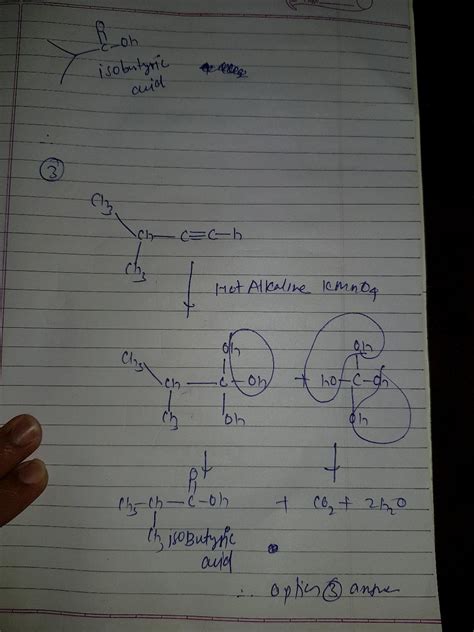 C-Oh
isobutyric
acid
③
Ch3
Ch — C≡C—h
Ch3
Hot Alkaline KMnO4
Oh Oh
Ch3
Ch — C — Oh + ho—C—Oh
Ch3
Oh Oh
Ch3—Ch—C—Oh + CO2 + 2h2O
Ch3 isoButyric
acid
∴ option ③ answer